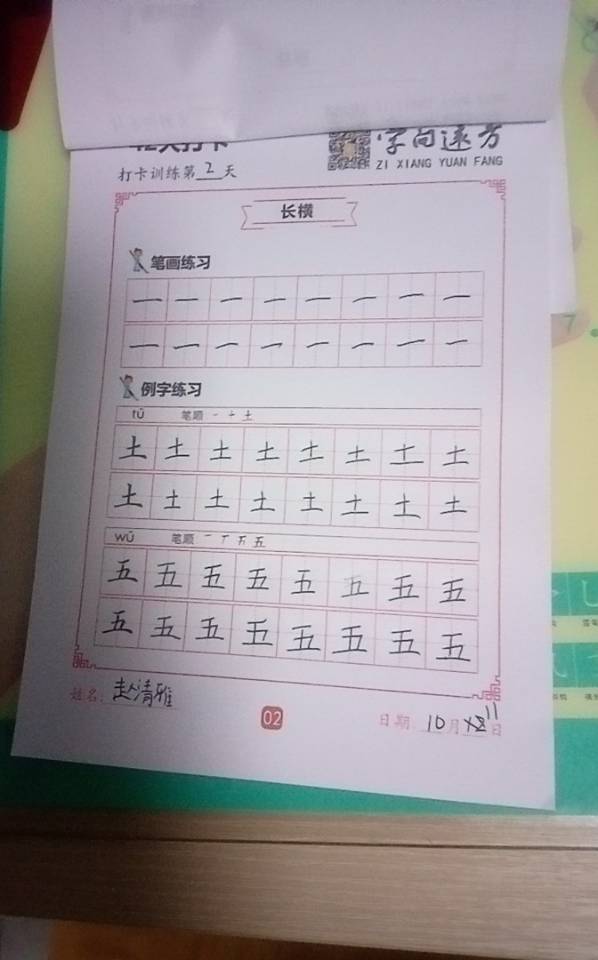 42天打卡
打卡训练第2天
字向远方
ZI XIANG YUAN FANG
长横
笔画练习
一 一 一 一 一 一 一 一
一 一 一 一 一 一 一 一
例字练习
tǔ 笔顺 一 十 土
土 土 土 土 土 土 土 土
土 土 土 土 土 土 土 土
wǔ 笔顺 一 丅 五 五
五 五 五 五 五 五 五 五
五 五 五 五 五 五 五 五
姓名: 赵清雅
02
日期: 10月11日